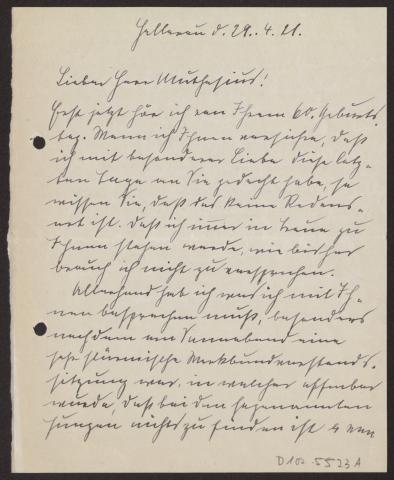 Hellerau d. 29. 4. 21.
Lieber Herr Muthesius!
Erst jetzt höre ich von Ihrem 60. Geburts-
tag. Wenn ich Ihnen versichre, daß
ich mit besonderer Liebe diese letz-
ten Tage an Sie gedacht habe, so
wissen Sie, daß das keine Redens-
art ist. Daß ich immer in Treue zu
Ihnen stehen werde, wie bisher
brauch ich nicht zu versprechen.
Allerhand hab ich was ich mit Ih-
nen besprechen muß, besonders
nachdem am Sonnabend eine
sehr stürmische Werkbundvorstands-
sitzung war, in welcher offenbar
wurde, daß bei den sogenannten
Jungen nichts zu finden ist
D 102-5523 A